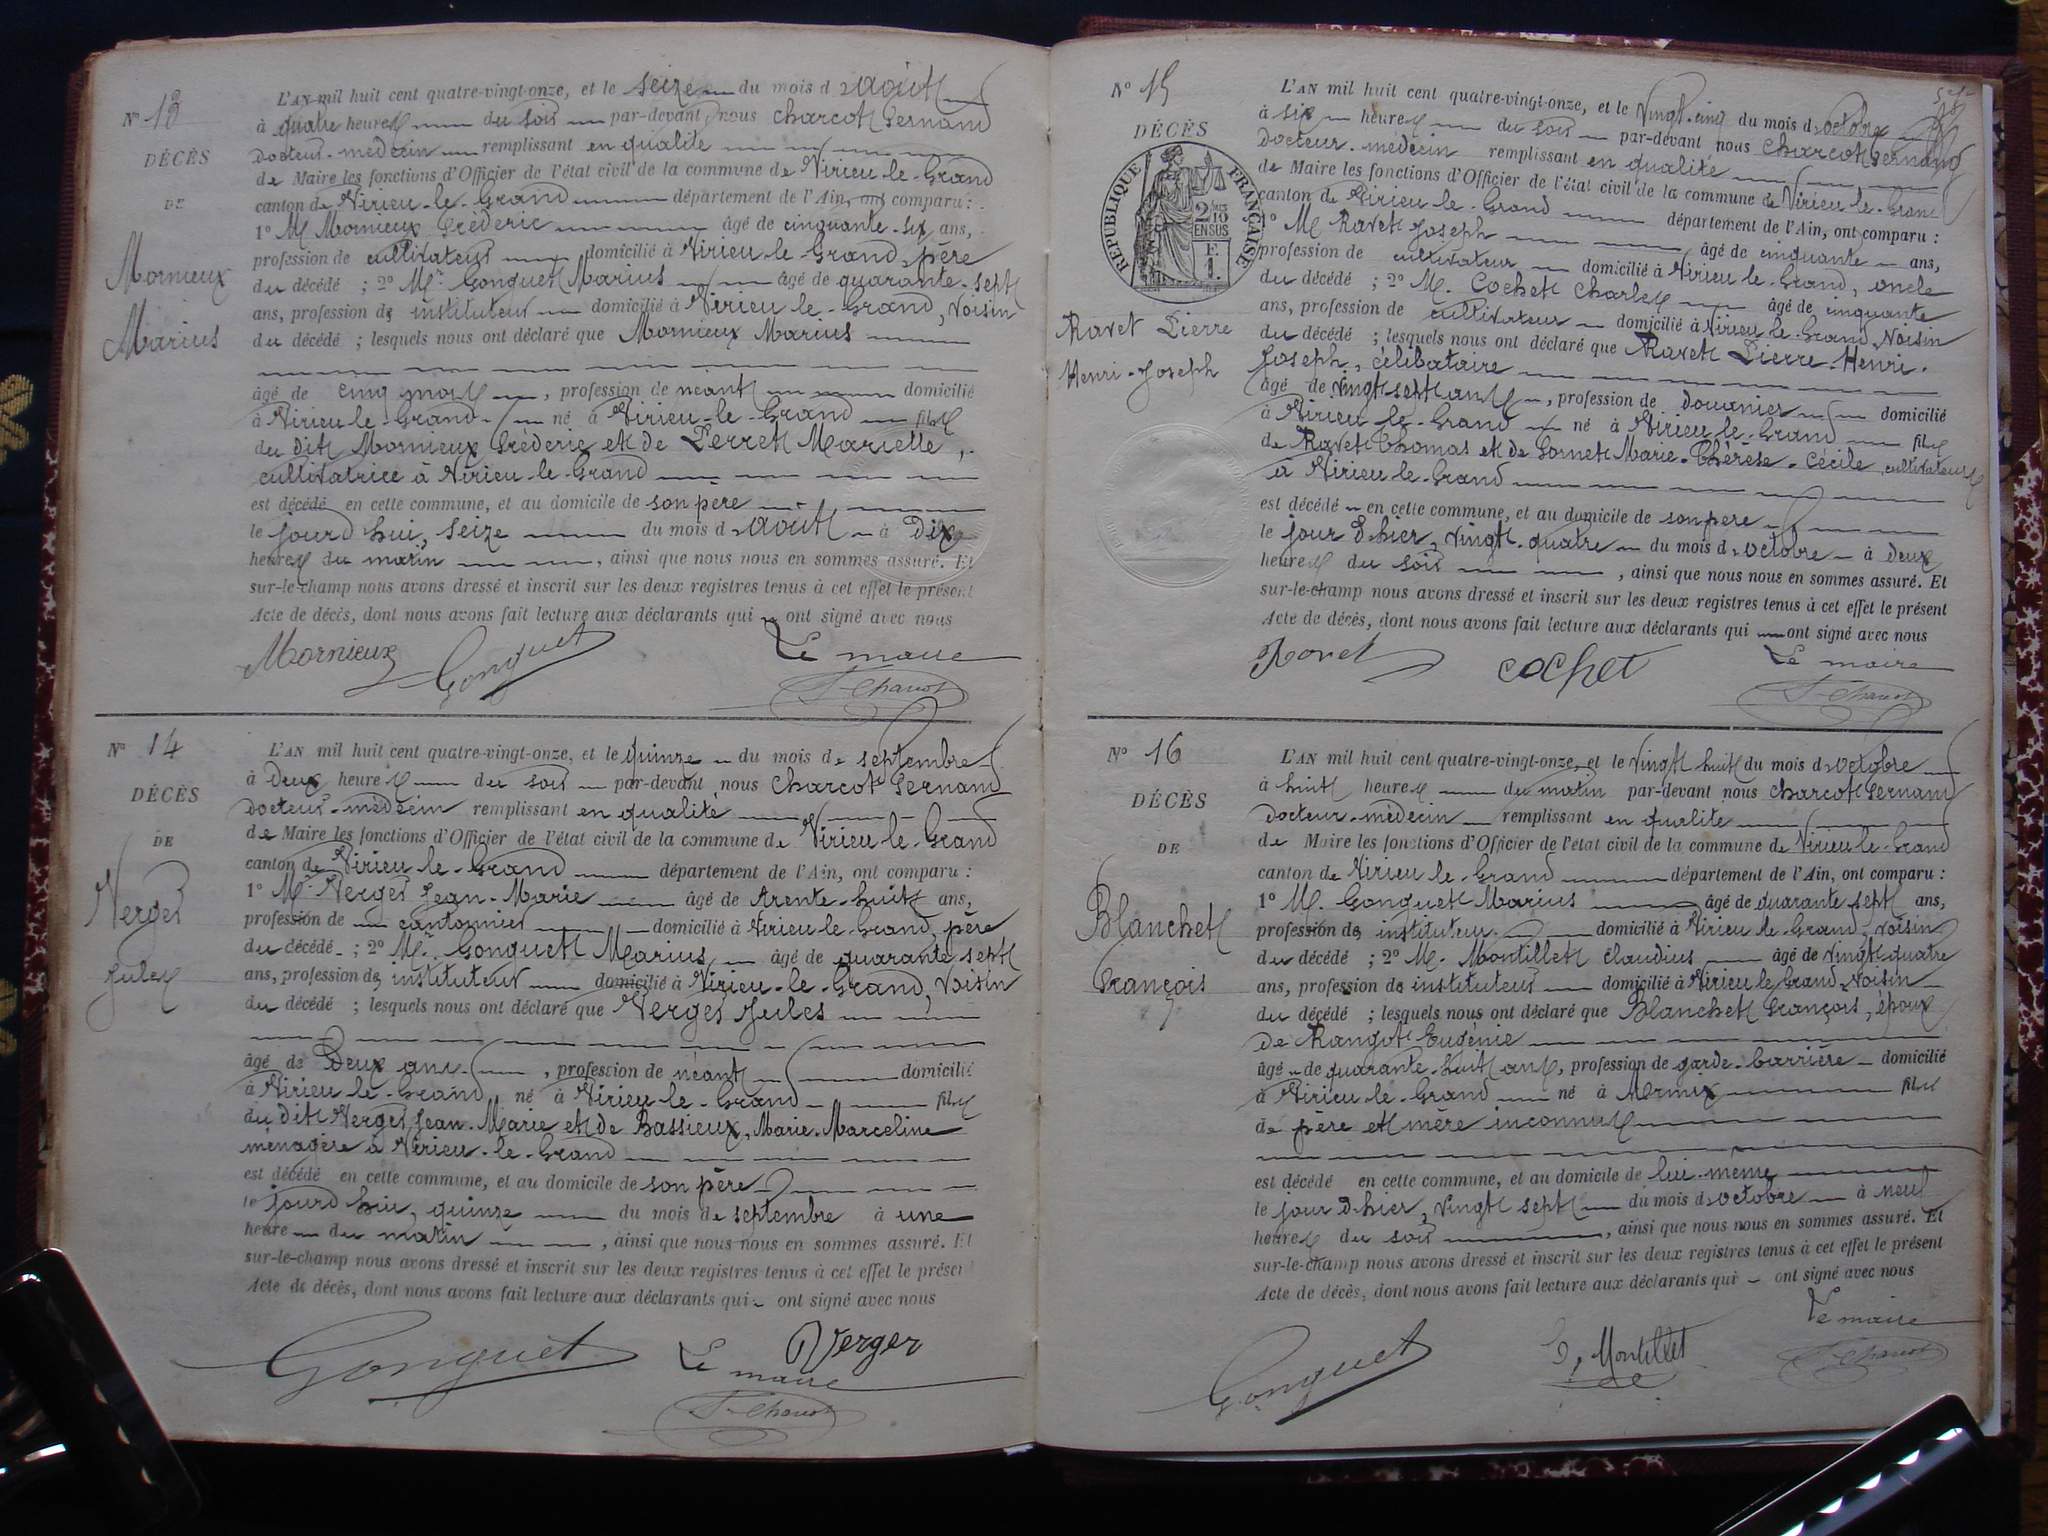 N° 13
DÉCÈS
DE
Mornieux
Marius
L'AN mil huit cent quatre-vingt-onze, et le seize du mois d'août
à quatre heures du soir par-devant nous Charcot Fernand
Docteur-médecin remplissant en qualité
de Maire les fonctions d'Officier de l'état civil de la commune de Virieu-le-Grand
canton de Virieu-le-Grand département de l'Ain, ont comparu :
1° M Mornieux Fréderic âgé de cinquante-six ans,
profession de cultivateur domicilié à Virieu-le-Grand, père
du décédé ; 2° Mr Gonguet Marius âgé de quarante-sept
ans, profession de instituteur domicilié à Virieu-le-Grand, voisin
du décédé ; lesquels nous ont déclaré que Mornieux Marius
âgé de cinq mois, profession de néant domicilié
à Virieu-le-Grand né à Virieu-le-Grand fils
du dit Mornieux Fréderic et de Perret Mariette,
cultivatrice à Virieu-le-Grand
est décédé en cette commune, et au domicile de son père
le jourd'hui, seize du mois d'août à dix
heures du matin, ainsi que nous nous en sommes assuré. Et
sur-le-champ nous avons dressé et inscrit sur les deux registres tenus à cet effet le présent
Acte de décès, dont nous avons fait lecture aux déclarants qui ont signé avec nous
Mornieux Gonguet Le maire
F. Charcot
N° 14
DÉCÈS
DE
Verger
Jules
L'AN mil huit cent quatre-vingt-onze, et le quinze du mois de septembre
à deux heures du soir par-devant nous Charcot Fernand
Docteur-médecin remplissant en qualité
de Maire les fonctions d'Officier de l'état civil de la commune de Virieu-le-Grand
canton de Virieu-le-Grand département de l'Ain, ont comparu :
1° Mr Verger Jean-Marie âgé de trente-huit ans,
profession de cantonnier domicilié à Virieu-le-Grand, père
du décédé ; 2° Mr Gonguet Marius âgé de quarante sept
ans, profession de instituteur domicilié à Virieu-le-Grand, voisin
du décédé ; lesquels nous ont déclaré que Verger Jules
âgé de deux ans, profession de néant domicilié
à Virieu-le-Grand né à Virieu-le-Grand fils
du dit Verger Jean-Marie et de Bassieux, Marie-Marceline
ménagère à Virieu-le-Grand
est décédé en cette commune, et au domicile de son père
le jourd'hui, quinze du mois de septembre à une
heure du matin, ainsi que nous nous en sommes assuré. Et
sur-le-champ nous avons dressé et inscrit sur les deux registres tenus à cet effet le présent
Acte de décès, dont nous avons fait lecture aux déclarants qui ont signé avec nous
Gonguet Le maire Verger
F. Charcot
N° 15
DÉCÈS
RÉPUBLIQUE FRANÇAISE
2/10 EN SUS
F.
1.
Ravet Pierre
Henri-Joseph
L'AN mil huit cent quatre-vingt-onze, et le vingt-cinq du mois d'octobre
à six heures du soir par-devant nous Charcot Fernand
Docteur-médecin remplissant en qualité
de Maire les fonctions d'Officier de l'état civil de la commune de Virieu-le-Grand
canton de Virieu-le-Grand département de l'Ain, ont comparu :
1° M Ravet Joseph âgé de cinquante ans,
profession de cultivateur domicilié à Virieu-le-Grand, oncle
du décédé ; 2° M. Cochet Charles âgé de cinquante
ans, profession de cultivateur domicilié à Virieu-le-Grand Voisin
du décédé ; lesquels nous ont déclaré que Ravet Pierre-Henri-
Joseph, célibataire
âgé de vingt sept ans, profession de douanier domicilié
à Virieu-le-Grand né à Virieu-le-Grand fils
de Ravet Thomas et de Gornet Marie-Thérèse-Cécile cultivateurs
à Virieu-le-Grand
est décédé en cette commune, et au domicile de son père
le jour d'hier, vingt-quatre du mois d'octobre à deux
heures du soir, ainsi que nous nous en sommes assuré. Et
sur-le-champ nous avons dressé et inscrit sur les deux registres tenus à cet effet le présent
Acte de décès, dont nous avons fait lecture aux déclarants qui ont signé avec nous
Ravet Cochet Le maire
F. Charcot
N° 16
DÉCÈS
DE
Blanchet
François
L'AN mil huit cent quatre-vingt-onze, et le vingt huit du mois d'octobre
à huit heures du matin par-devant nous Charcot Fernand
Docteur-médecin remplissant en qualité
de Maire les fonctions d'Officier de l'état civil de la commune de Virieu-le-Grand
canton de Virieu-le-Grand département de l'Ain, ont comparu :
1° M. Gonguet Marius âgé de quarante sept ans,
profession de instituteur domicilié à Virieu-le-Grand, voisin
du décédé ; 2° M. Montillet Claudius âgé de vingt-quatre
ans, profession de instituteur domicilié à Virieu-le-Grand Voisin
du décédé ; lesquels nous ont déclaré que Blanchet François, époux
de Rangot Eugénie
âgé de quarante-huit ans, profession de garde-barrière domicilié
à Virieu-le-Grand né à Mermix fils
de père et mère inconnus
est décédé en cette commune, et au domicile de lui-même
le jour d'hier, vingt sept du mois d'octobre à neuf
heures du soir, ainsi que nous nous en sommes assuré. Et
sur-le-champ nous avons dressé et inscrit sur les deux registres tenus à cet effet le présent
Acte de décès, dont nous avons fait lecture aux déclarants qui ont signé avec nous
Le maire
Gonguet C. Montillet F. Charcot